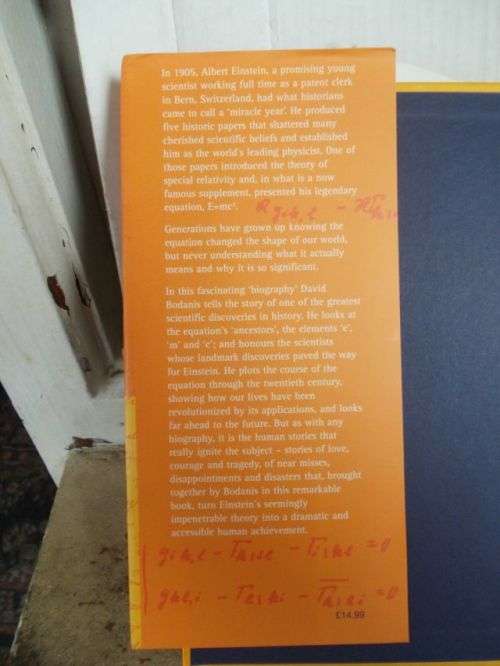 In 1905, Albert Einstein, a promising young
scientist working full time as a patent clerk
in Bern, Switzerland, had what historians
came to call a 'miracle year'. He produced
five historic papers that shattered many
cherished scientific beliefs and established
him as the world's leading physicist. One of
those papers introduced the theory of
special relativity and, in what is a now
famous supplement, presented his legendary
equation, E=mc².
Generations have grown up knowing the
equation changed the shape of our world,
but never understanding what it actually
means and why it is so significant.
In this fascinating 'biography' David
Bodanis tells the story of one of the greatest
scientific discoveries in history. He looks at
the equation's 'ancestors', the elements 'e',
'm' and 'c'; and honours the scientists
whose landmark discoveries paved the way
for Einstein. He plots the course of the
equation through the twentieth century,
showing how our lives have been
revolutionized by its applications, and looks
far ahead to the future. But as with any
biography, it is the human stories that
really ignite the subject – stories of love,
courage and tragedy, of near misses,
disappointments and disasters that, brought
together by Bodanis in this remarkable
book, turn Einstein's seemingly
impenetrable theory into a dramatic and
accessible human achievement.
£14.99